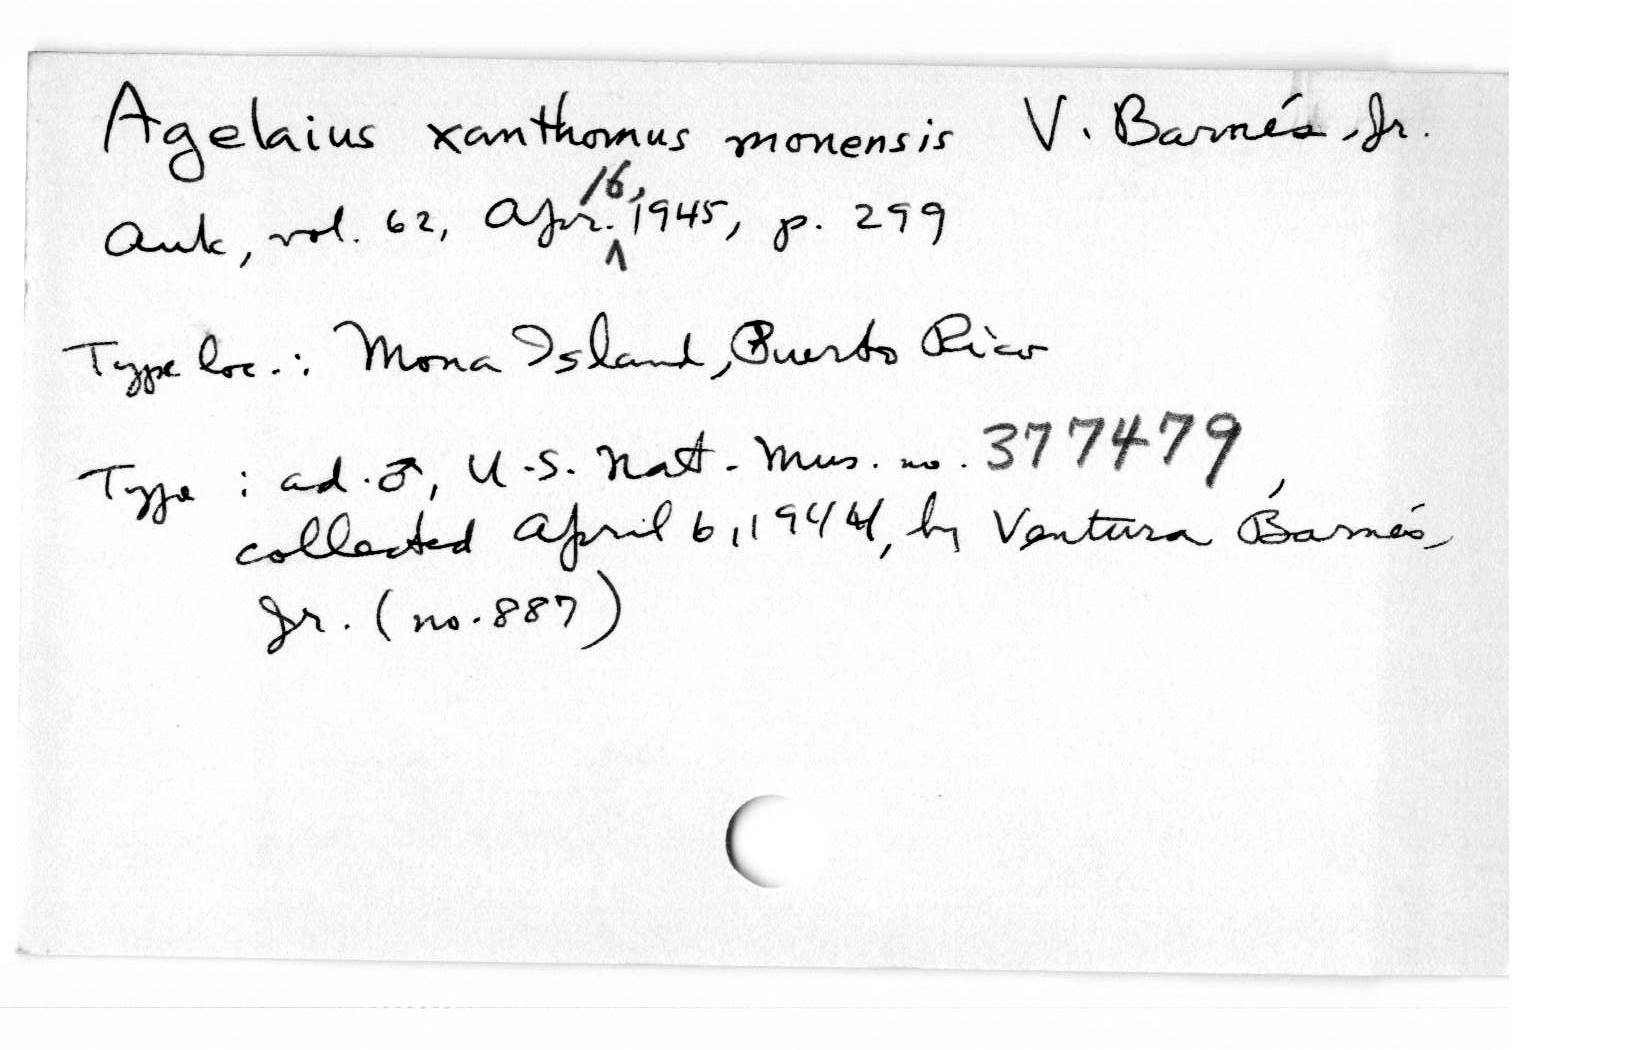 Agelaius xanthomus monensis V. Barnés, Jr.
Auk, vol. 62, Apr. 16, 1945, p. 299
Type loc.: Mona Island, Puerto Rico
Type : ad. ♂, U.S. Nat. Mus. no. 377479,
collected April 6, 1944, by Ventura Barnés,
Jr. (no. 887)